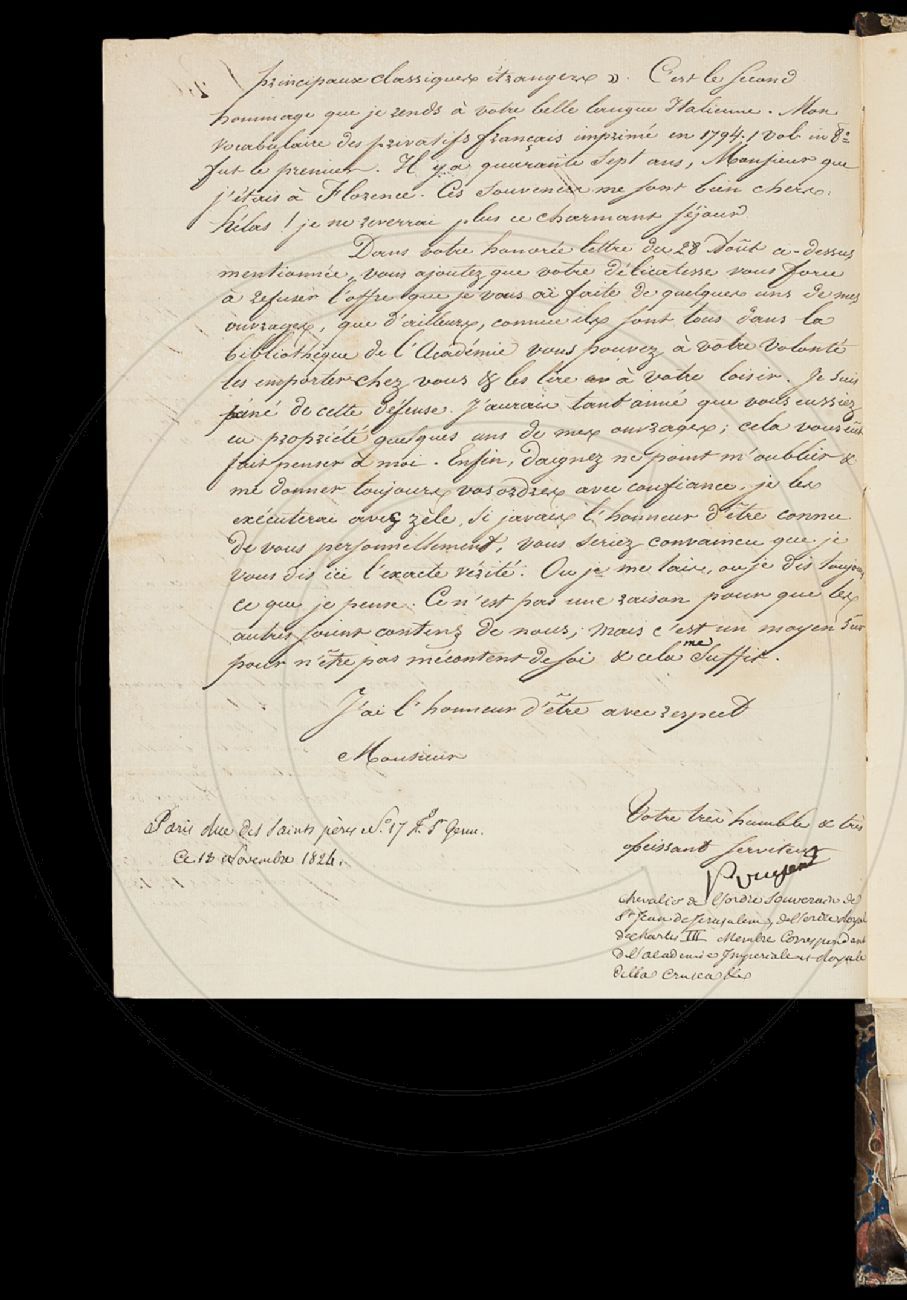 principaux classiques étrangers ». C'est le second
hommage que je rends à votre belle langue Italienne. Mon
vocabulaire des privatifs français imprimé en 1794. 1 vol. in 8°
fut le premier. Il y a quarante sept ans, Monsieur que
j'étais à Florence. Ces souvenirs me sont bien chers.
hélas ! je ne reverrai plus ce charmant séjour.
Dans votre honorée lettre du 28 Août ci-dessus
mentionnée, vous ajoutez que votre délicatesse vous force
à refuser l'offre que je vous ai faite de quelques uns de mes
ouvrages, que d'ailleurs, comme ils sont tous dans la
bibliothèque de l'Académie vous pouvez à votre volonté
les emporter chez vous & les lire à votre loisir. Je suis
peiné de cette défense. J'aurais tant aimé que vous eussiez
en propriété quelques uns de mes ouvrages; cela vous eût
fait penser à moi. Enfin, daignez ne point m'oublier &
me donner toujours vos ordres avec confiance. je les
exécuterai avec zèle. Si j'avais l'honneur d'être connu
de vous personnellement, vous seriez convaincu que je
vous dis ici l'exacte vérité. Ou je me tais, ou je dis toujours
ce que je pense. Ce n'est pas une raison pour que les
autres soient contens de nous; mais c'est un moyen sûr
pour n'être pas mécontent de soi & cela me suffit.
J'ai l'honneur d'être avec respect
Monsieur
Paris rue des Saints pères N.° 17 f. S.t Germ.
Ce 13 Novembre 1824.
Votre très humble & très
obéissant serviteur
Pougens
chevalier de l'ordre Souverain de
S.t Jean de Jerusalem, de l'ordre Royal
de charles III Membre Correspondant
de l'academie Imperiale et Royale
della Crusca &c